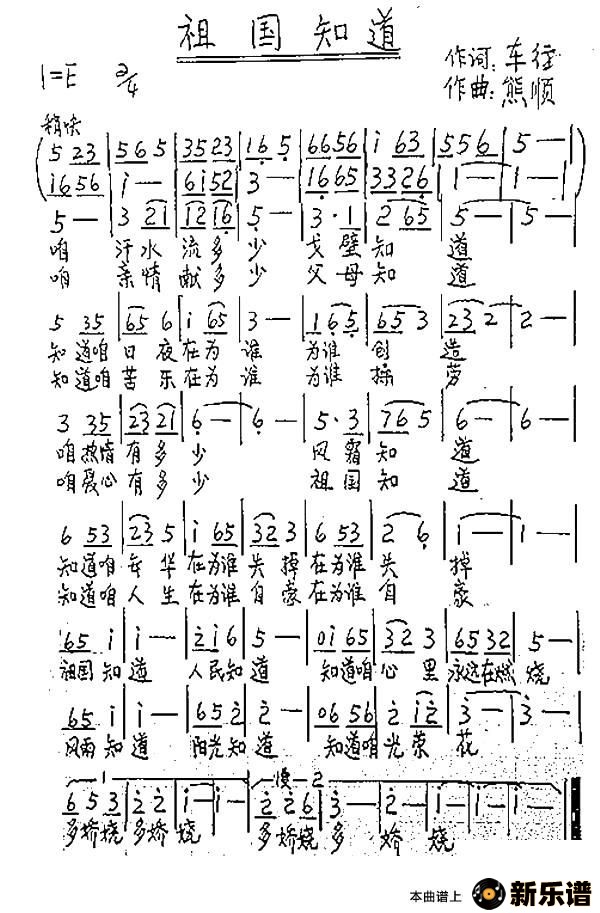 祖国知道
1=E 2/4
作词:车行
作曲:熊顺
稍快
(5 23 | 565 | 3523 | 165 | 6656 | i 63 | 556 | 5 — |
i656 | i — | 6i52 | 3 — | 1665 | 3326 | i — | i — )
5 — | 3 2i | i2i6 | 5 — | 3·1 | 2 65 | 5 — | 5 —
咱 汗水 流多少 戈壁知 道
咱 亲情 献多少 父母知 道
5 35 | 65 6 | i 65 | 3 — | 165 | 65 3 | 23 2 | 2 —
知道咱 日夜在为 谁 为谁 创 造
知道咱 苦乐在为 谁 为谁 操 劳
3 35 | 23 21 | 6 — | 6 — | 5·3 | 76 5 | 6 — | 6 —
咱热情有多少 风霜知 道
咱爱心有多少 祖国知 道
6 53 | 23 5 | i 65 | 32 3 | 6 53 | 2 6 | i — | i —
知道咱年华在为谁失掉在为谁失 掉
知道咱人生在为谁自豪在为谁自 豪
65 i | i — | 2i6 | 5 — | 0i 65 | 32 3 | 65 32 | 5 —
祖国知道 人民知道 知道咱心里永远在燃烧
65 i | i — | 65 2 | 2 — | 06 56 | 2 i2 | 3 — | 3 —
风雨知道 阳光知道 知道咱光荣花
1 慢 2
653 | 22 | i — | i — | 226 | 3 — | 2 — | i — | i — | i —
多娇娆多娇娆 多娇娆多 娇娆
本曲谱上 新乐谱